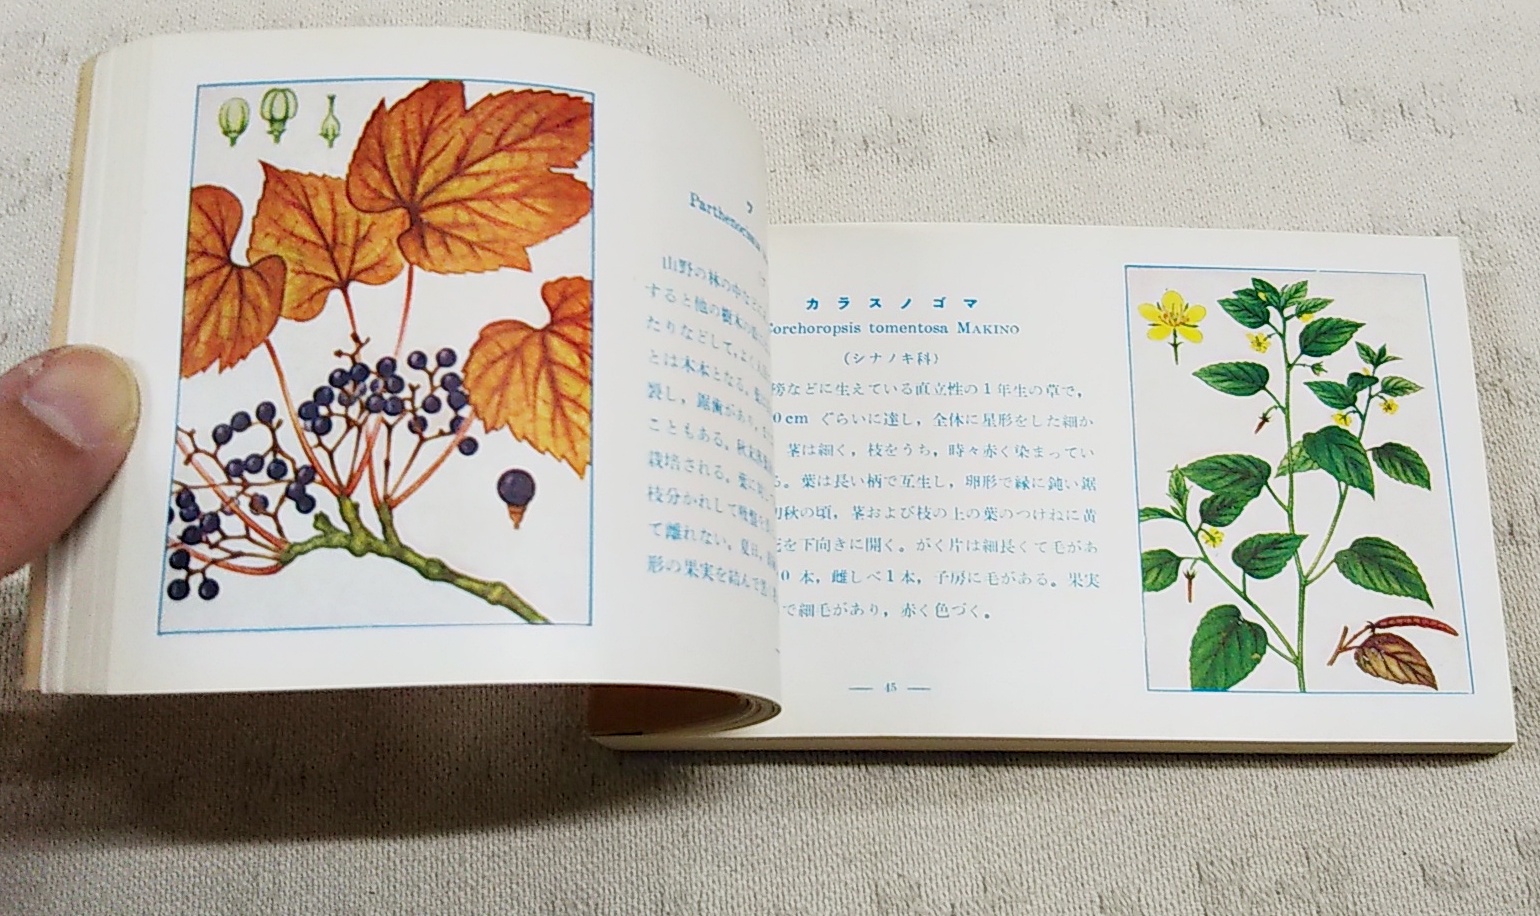 Parthenocissus
山野の林の中など
すると他の樹木の
たりなどして，よく
とは木本となる。
裂し，鋸歯があり，
こともある。秋
栽培される。葉に対
枝分かれして吸盤
て離れない。夏日，
形の果実を結んで
カラスノゴマ
Corchoropsis tomentosa MAKINO
（シナノキ科）
傍などに生えている直立性の1年生の草で，
0cm ぐらいに達し，全体に星形をした細か
茎は細く，枝をうち，時々赤く染まってい
る。葉は長い柄で互生し，卵形で縁に鈍い鋸
初秋の頃，茎および枝の上の葉のつけねに黄
花を下向きに開く。がく片は細長くて毛があ
0 本，雌しべ1本，子房に毛がある。果実
で細毛があり，赤く色づく。
— 45 —